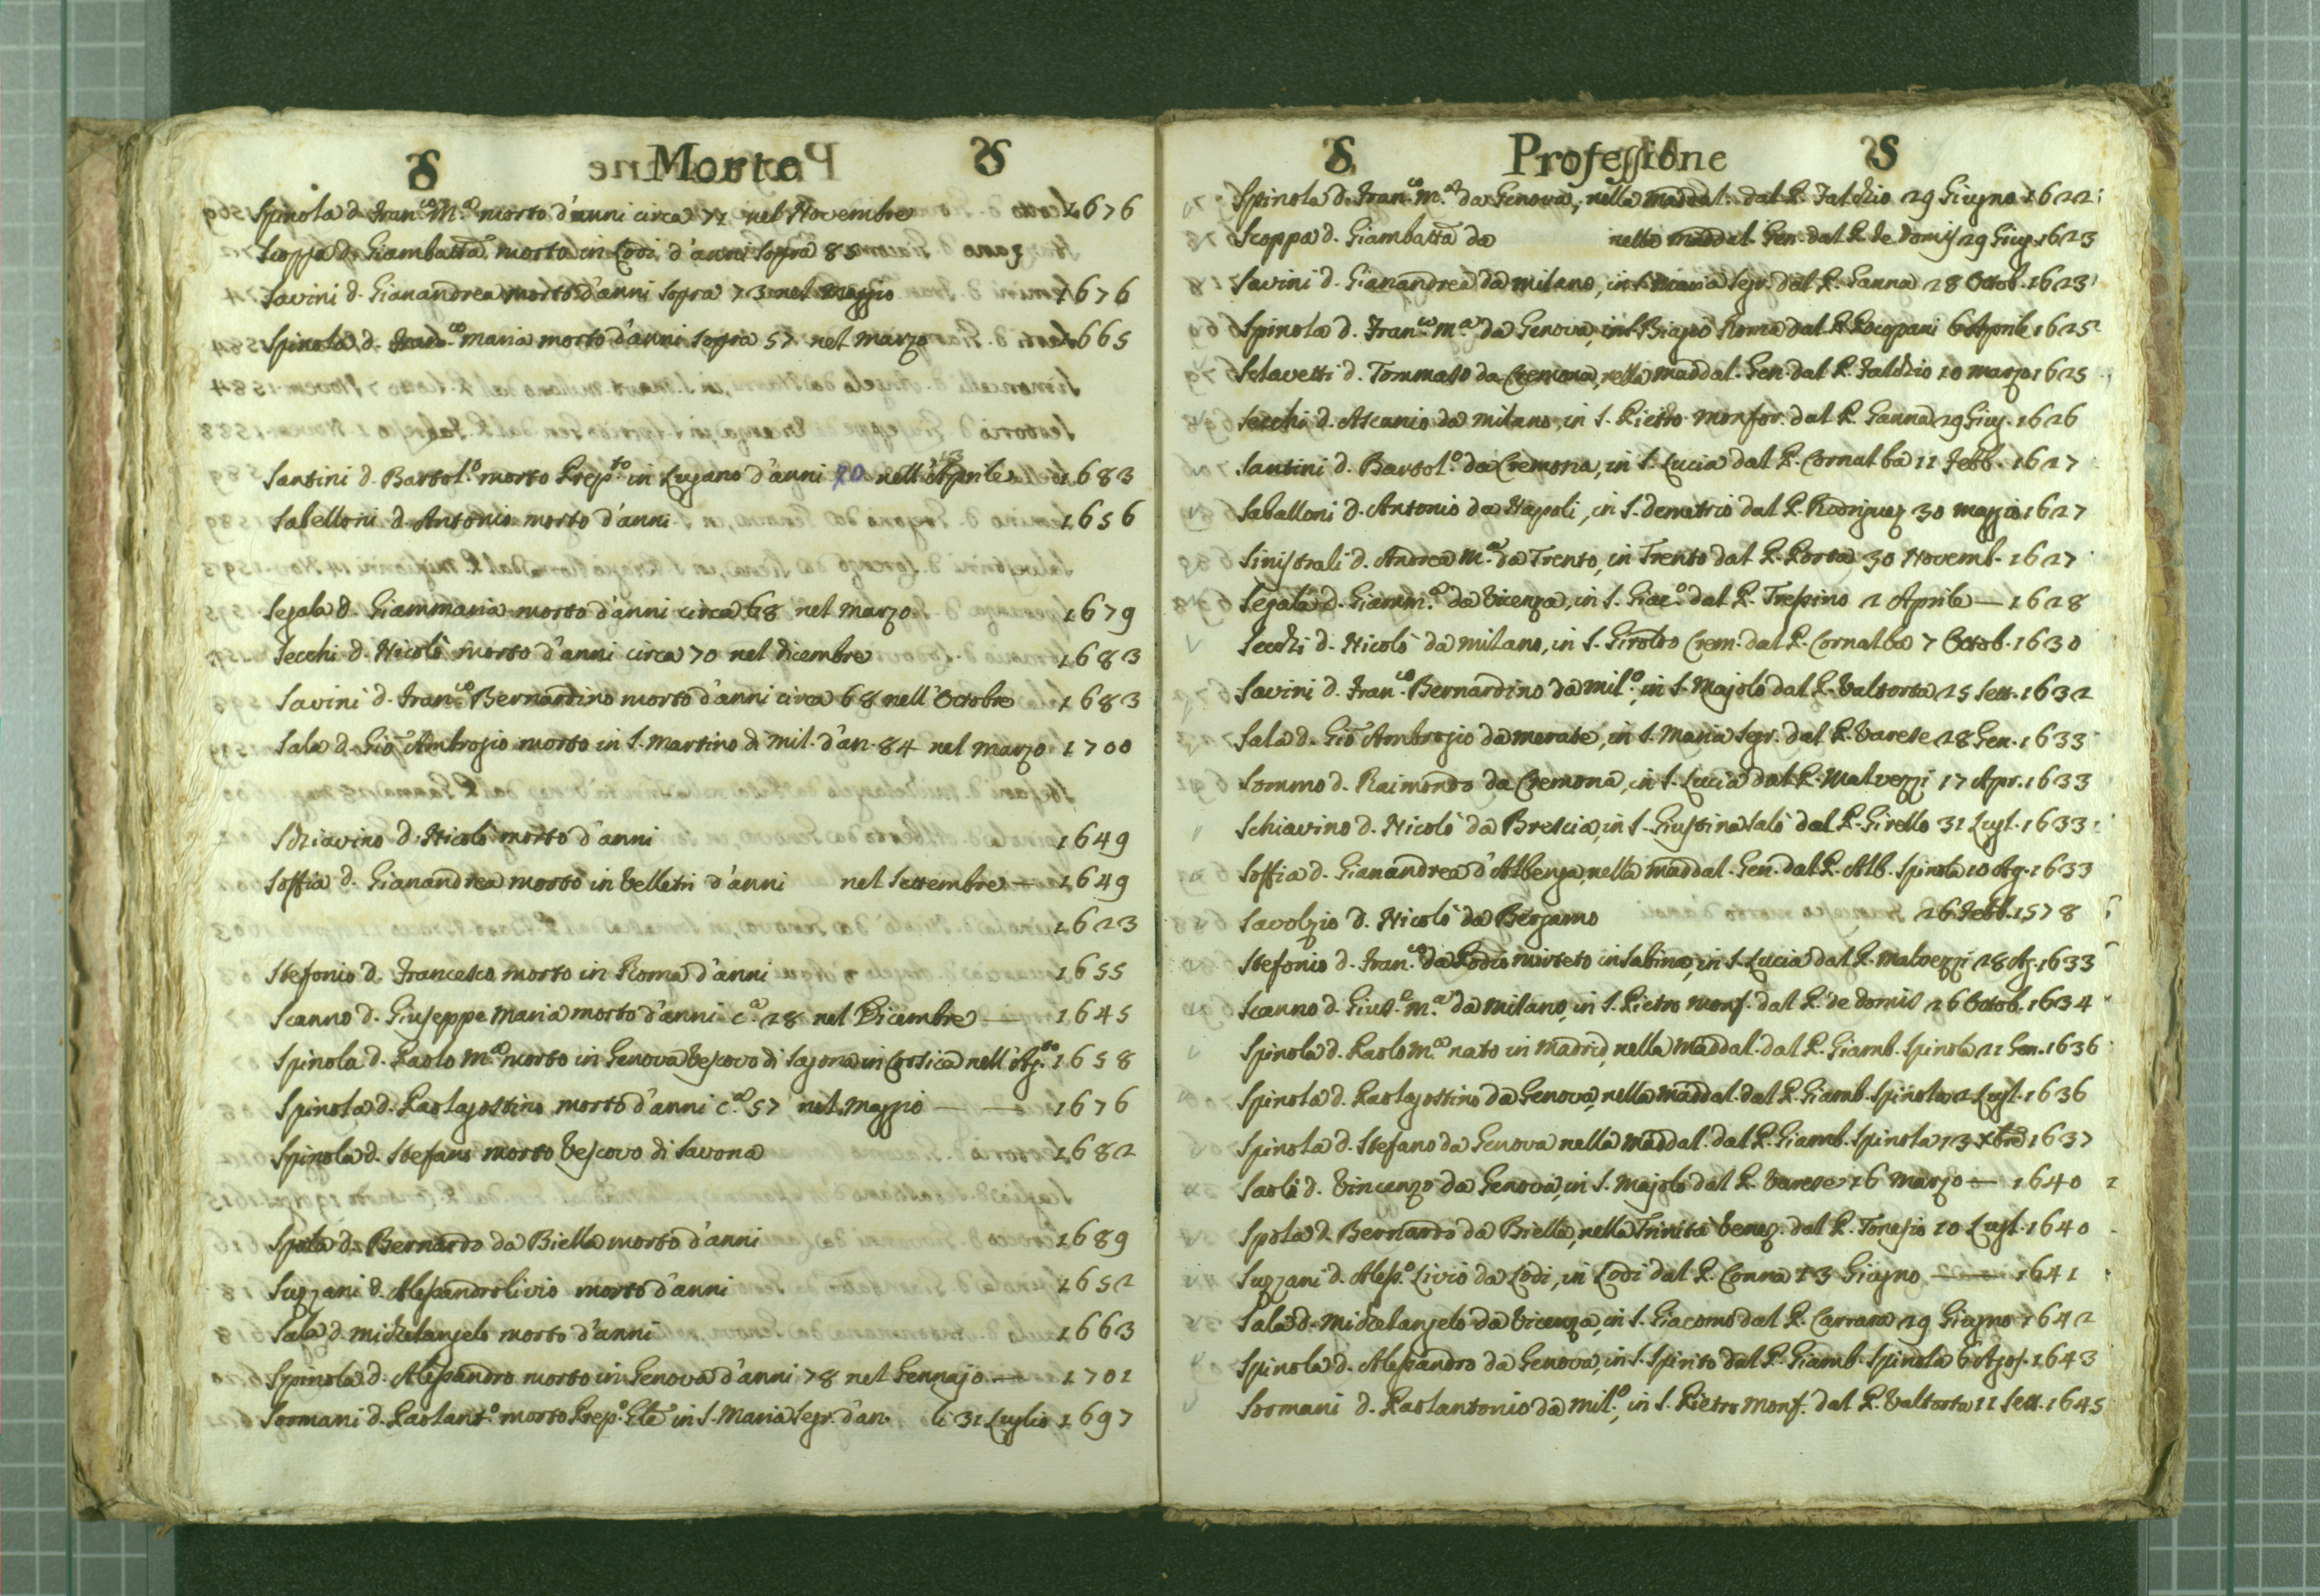 S Morto S
Spinola d. Fran.co M.a morto d'anni circa 72 nel Novembre 1676
Scoppa d. Giambatta morto in Lodi d'anni sopra 85
Savini d. Gianandrea morto d'anni sopra 73 nel Maggio 1676
Spinola d. Fran.co Maria morto d'anni sopra 57 nel Marzo 1665
Santini d. Bartol.o morto Prep.to in Lugano d'anni 70 nell'Aprile 1683
Sabelloni d. Antonio morto d'anni 1656
Segala d. Giammaria morto d'anni circa 68 nel Marzo 1679
Secchi d. Nicolò morto d'anni circa 70 nel Dicembre 1683
Savini d. Fran.co Bernardino morto d'anni circa 68 nell'Octobre 1683
Sala d. Gio Ambrogio morto in S. Martino di Mil. d'an. 84 nel Marzo 1700
Schiavino d. Nicolò morto d'anni 1649
Soffia d. Gianandrea morto in Velletri d'anni nel Settembre — 1649
1623
Stefonio d. Francesco morto in Roma d'anni 1655
Scanno d. Giuseppe Maria morto d'anni c.a 28 nel Dicembre — 1645
Spinola d. Paolo M.a morto in Genova Vescovo di Sagona in Corsica nell'Ag.to 1658
Spinola d. Paolagostino morto d'anni c.a 57 nel Maggio — — 1676
Spinola d. Stefano morto Vescovo di Savona 1682
Spola d. Bernardo da Biella morto d'anni 1689
Suzzani d. Alessandro livio morto d'anni 1652
Sala d. Michelangelo morto d'anni 1663
Spinola d. Alessandro morto in Genova d'anni 78 nel Gennajo — 1701
Sormani d. Paolant.o morto Prep.o in S. Maria Segr. d'an. li 31 Luglio 1697
S Professione S
Spinola d. Fran.co M.a da Genova, nella Maddal. dal P. Falchio 29 Giugno 1622
Scoppa d. Giambatta da nella Maddal. Gen. dal P. de Domis 29 Giug. 1623
Savini d. Gianandrea da Milano, in S. Maria Segr. dal P. Ganna 28 Octob. 1623
Spinola d. Fran.co M.a da Genova, in S. Biagio Roma dal P. Socopani 6 Aprile 1625
Sclavetti d. Tommaso da Cremona, nella Maddal. Gen. dal P. Falchio 10 Marzo 1625
Secchi d. Ascanio da Milano, in S. Pietro Monfor. dal P. Ganna 29 Giug. 1626
Santini d. Bartol.o da Cremona, in S. Lucia dal P. Cornalba 11 Febb. 1627
Saballoni d. Antonio da Napoli, in S. Demetrio dal P. Rodriguez 30 Maggio 1627
Sinistrali d. Andrea M.a da Trento, in Trento dal P. Porta 30 Novemb. 1627
Segala d. Giamm.a da Vicenza, in S. Giac.o dal P. Tressino 2 Aprile — 1628
Secchi d. Nicolò da Milano, in S. Girolmo Crem. dal P. Cornalba 7 Octob. 1630
Savini d. Fran.co Bernardino da Mil.o, in S. Majolo dal P. Valtorta 25 Sett. 1632
Sala d. Gio Ambrogio da Merate, in S. Maria Segr. dal P. Varese 28 Gen. 1633
Sommo d. Raimondo da Cremona, in S. Lucia dal P. Malvezzi 17 Apr. 1633
Schiavino d. Nicolò da Brescia, in S. Giustina Salò dal P. Girello 31 Lugl. 1633
Soffia d. Gianandrea d'Albenga, nella Maddal. Gen. dal P. Alb. Spinola 10 Ag. 1633
Savolzio d. Nicolò da Bergamo 26 Febb. 1578
Stefonio d. Fran.co da Podio mirteto in Sabina, in S. Lucia dal P. Malvezzi 28 Ag. 1633
Scanno d. Gius.e M.a da Milano, in S. Pietro Monf. dal P. de Domis 26 Octob. 1634
Spinola d. Paolo M.a nato in Madrid, nella Maddal. dal P. Giamb. Spinola 21 Gen. 1636
Spinola d. Paolagostino da Genova, nella Maddal. dal P. Giamb. Spinola 2 Lugl. 1636
Spinola d. Stefano da Genova nella Maddal. dal P. Giamb. Spinola 13 Xbre 1637
Saoli d. Vincenzo da Genova, in S. Majolo dal P. Varese 16 Marzo — 1640
Spola d. Bernardo da Biella, nella Trinità Venez. dal P. Tonesio 10 Lugl. 1640
Suzzani d. Aless.o Livio da Lodi, in Lodi dal P. Conna 13 Giugno — 1641
Sala d. Michelangelo da Vicenza, in S. Giacomo dal P. Carrara 29 Giugno 1642
Spinola d. Alessandro da Genova, in S. Spirito dal P. Giamb. Spinola 6 Agos. 1643
Sormani d. Paolantonio da Mil.o, in S. Pietro Monf. dal P. Valtorta 11 Sett. 1645